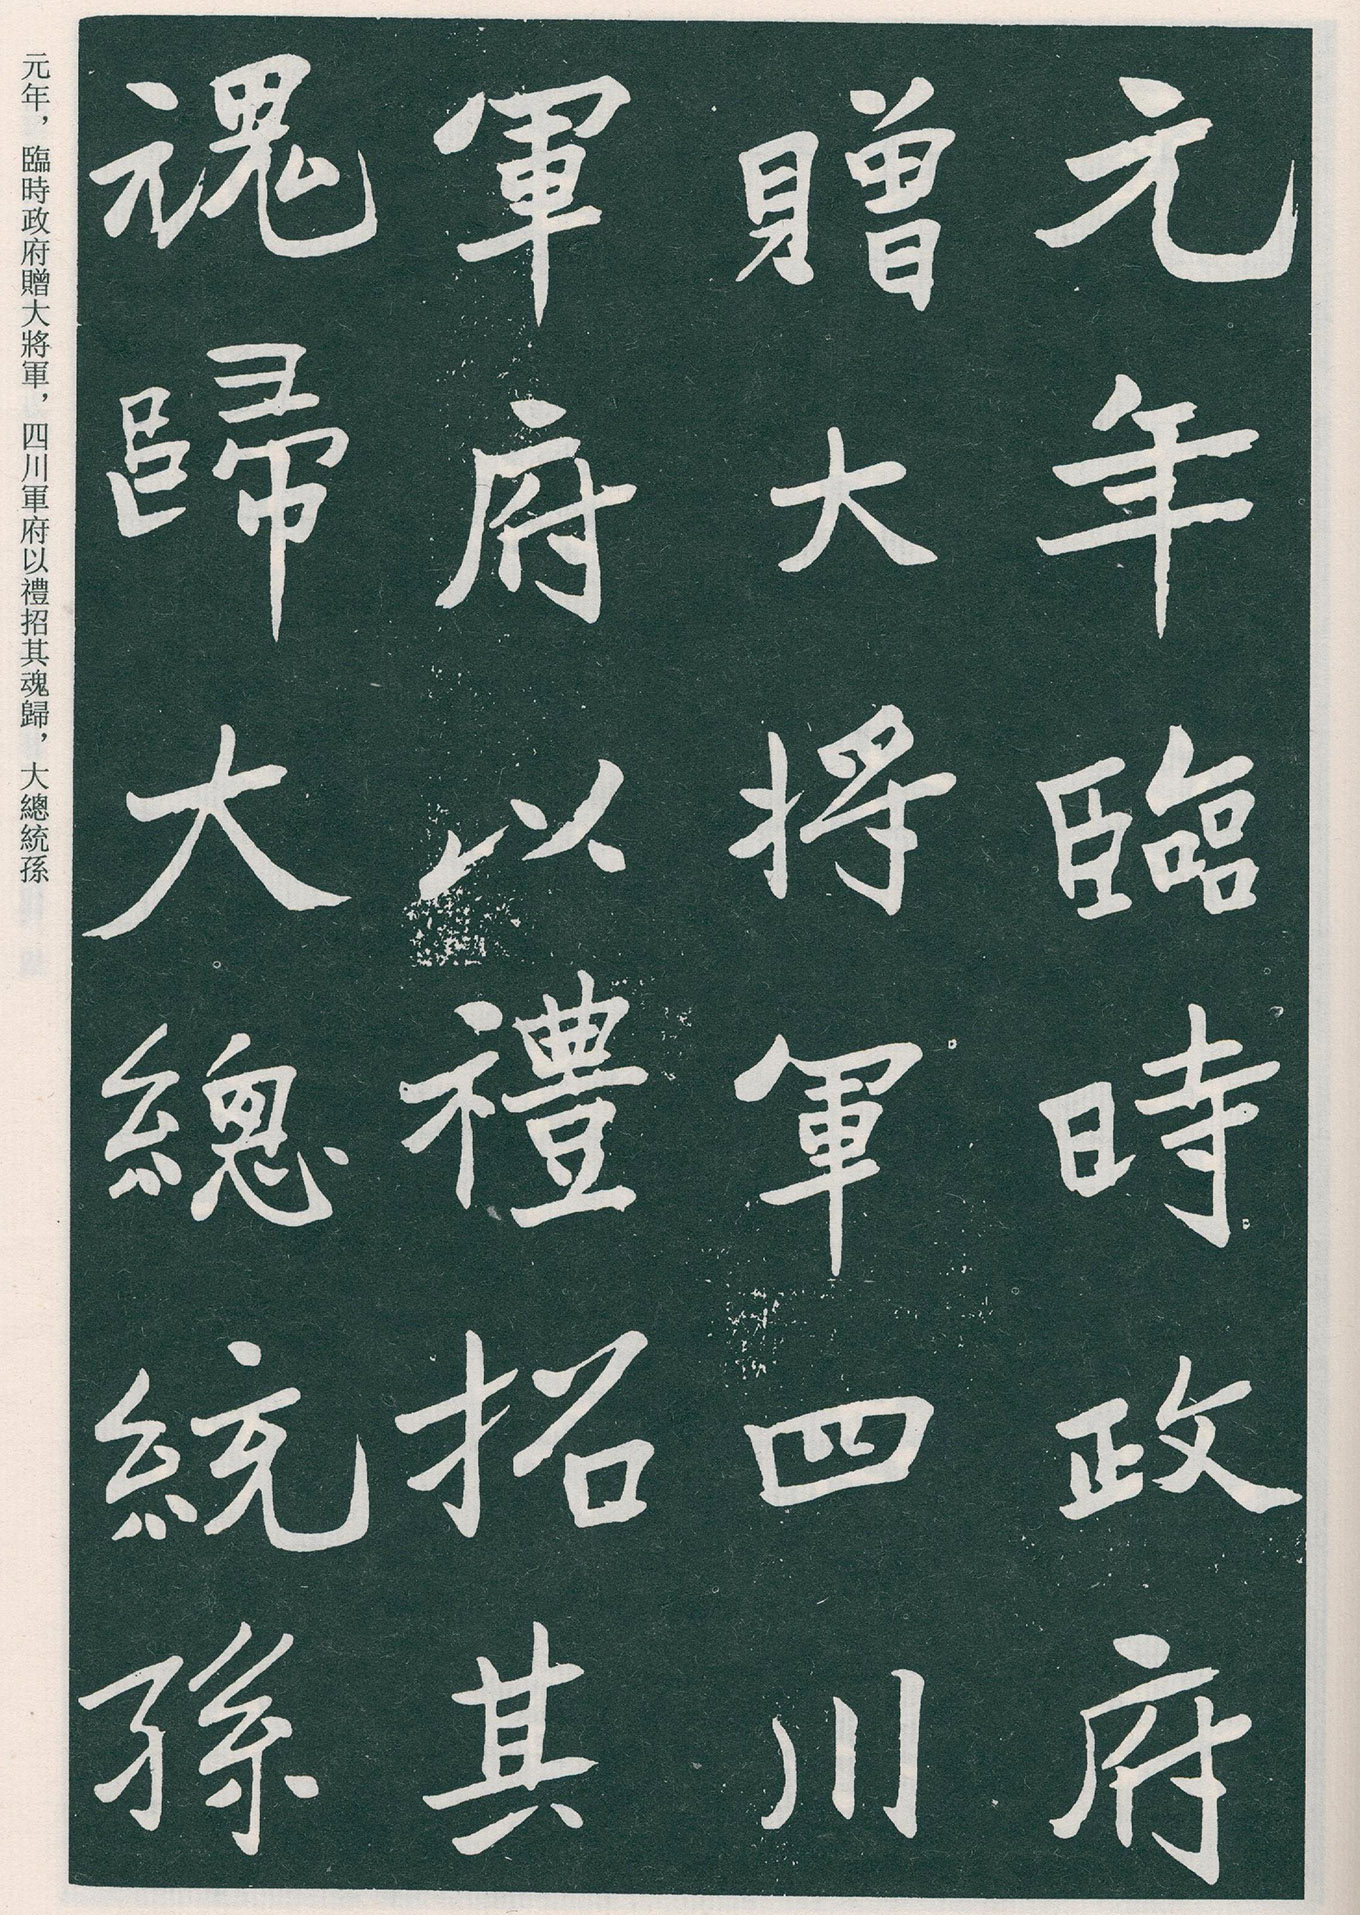 元年臨時政府
贈大將軍四川
軍府以禮招其
魂歸大總統孫
元年，臨時政府贈大將軍，四川軍府以禮招其魂歸，大總統孫